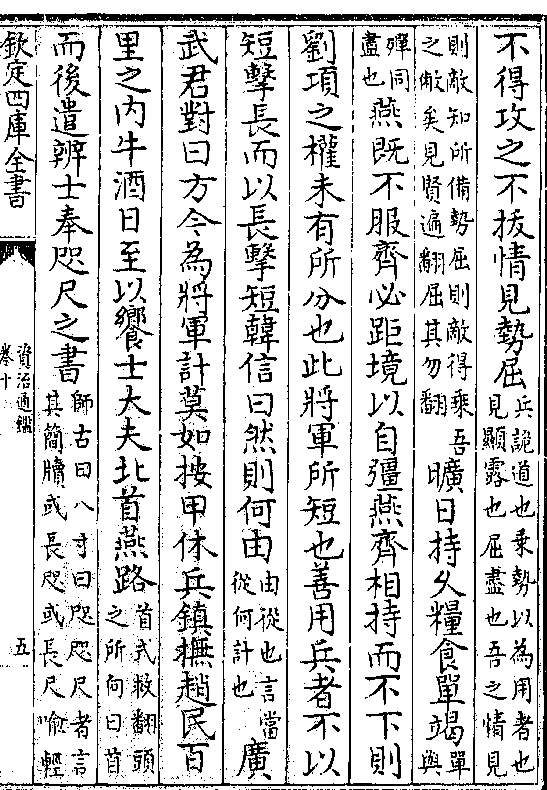 不得攻之不拔情見勢屈兵詭道也乗勢以為用者也見顯露也屈盡也吾之情見
則敵知所備勢屈則敵得乗吾之敝矣見賢遍翻屈其勿翻曠日持久糧食單竭單與
殫同盡也燕既不服齊必距境以自彊燕齊相持而不下則
劉項之權未有所分也此將軍所短也善用兵者不以
短擊長而以長擊短韓信曰然則何由由從也言當從何計也廣
武君對曰方今為將軍計莫如按甲休兵鎮撫趙民百
里之内牛酒日至以饗士大夫北首燕路首式救翻頭之所向曰首
而後遣辨士奉咫尺之書師古曰八寸曰咫咫尺者言其簡牘或長咫或長尺喻輕
欽定四庫全書
資治通鑑
卷十
五